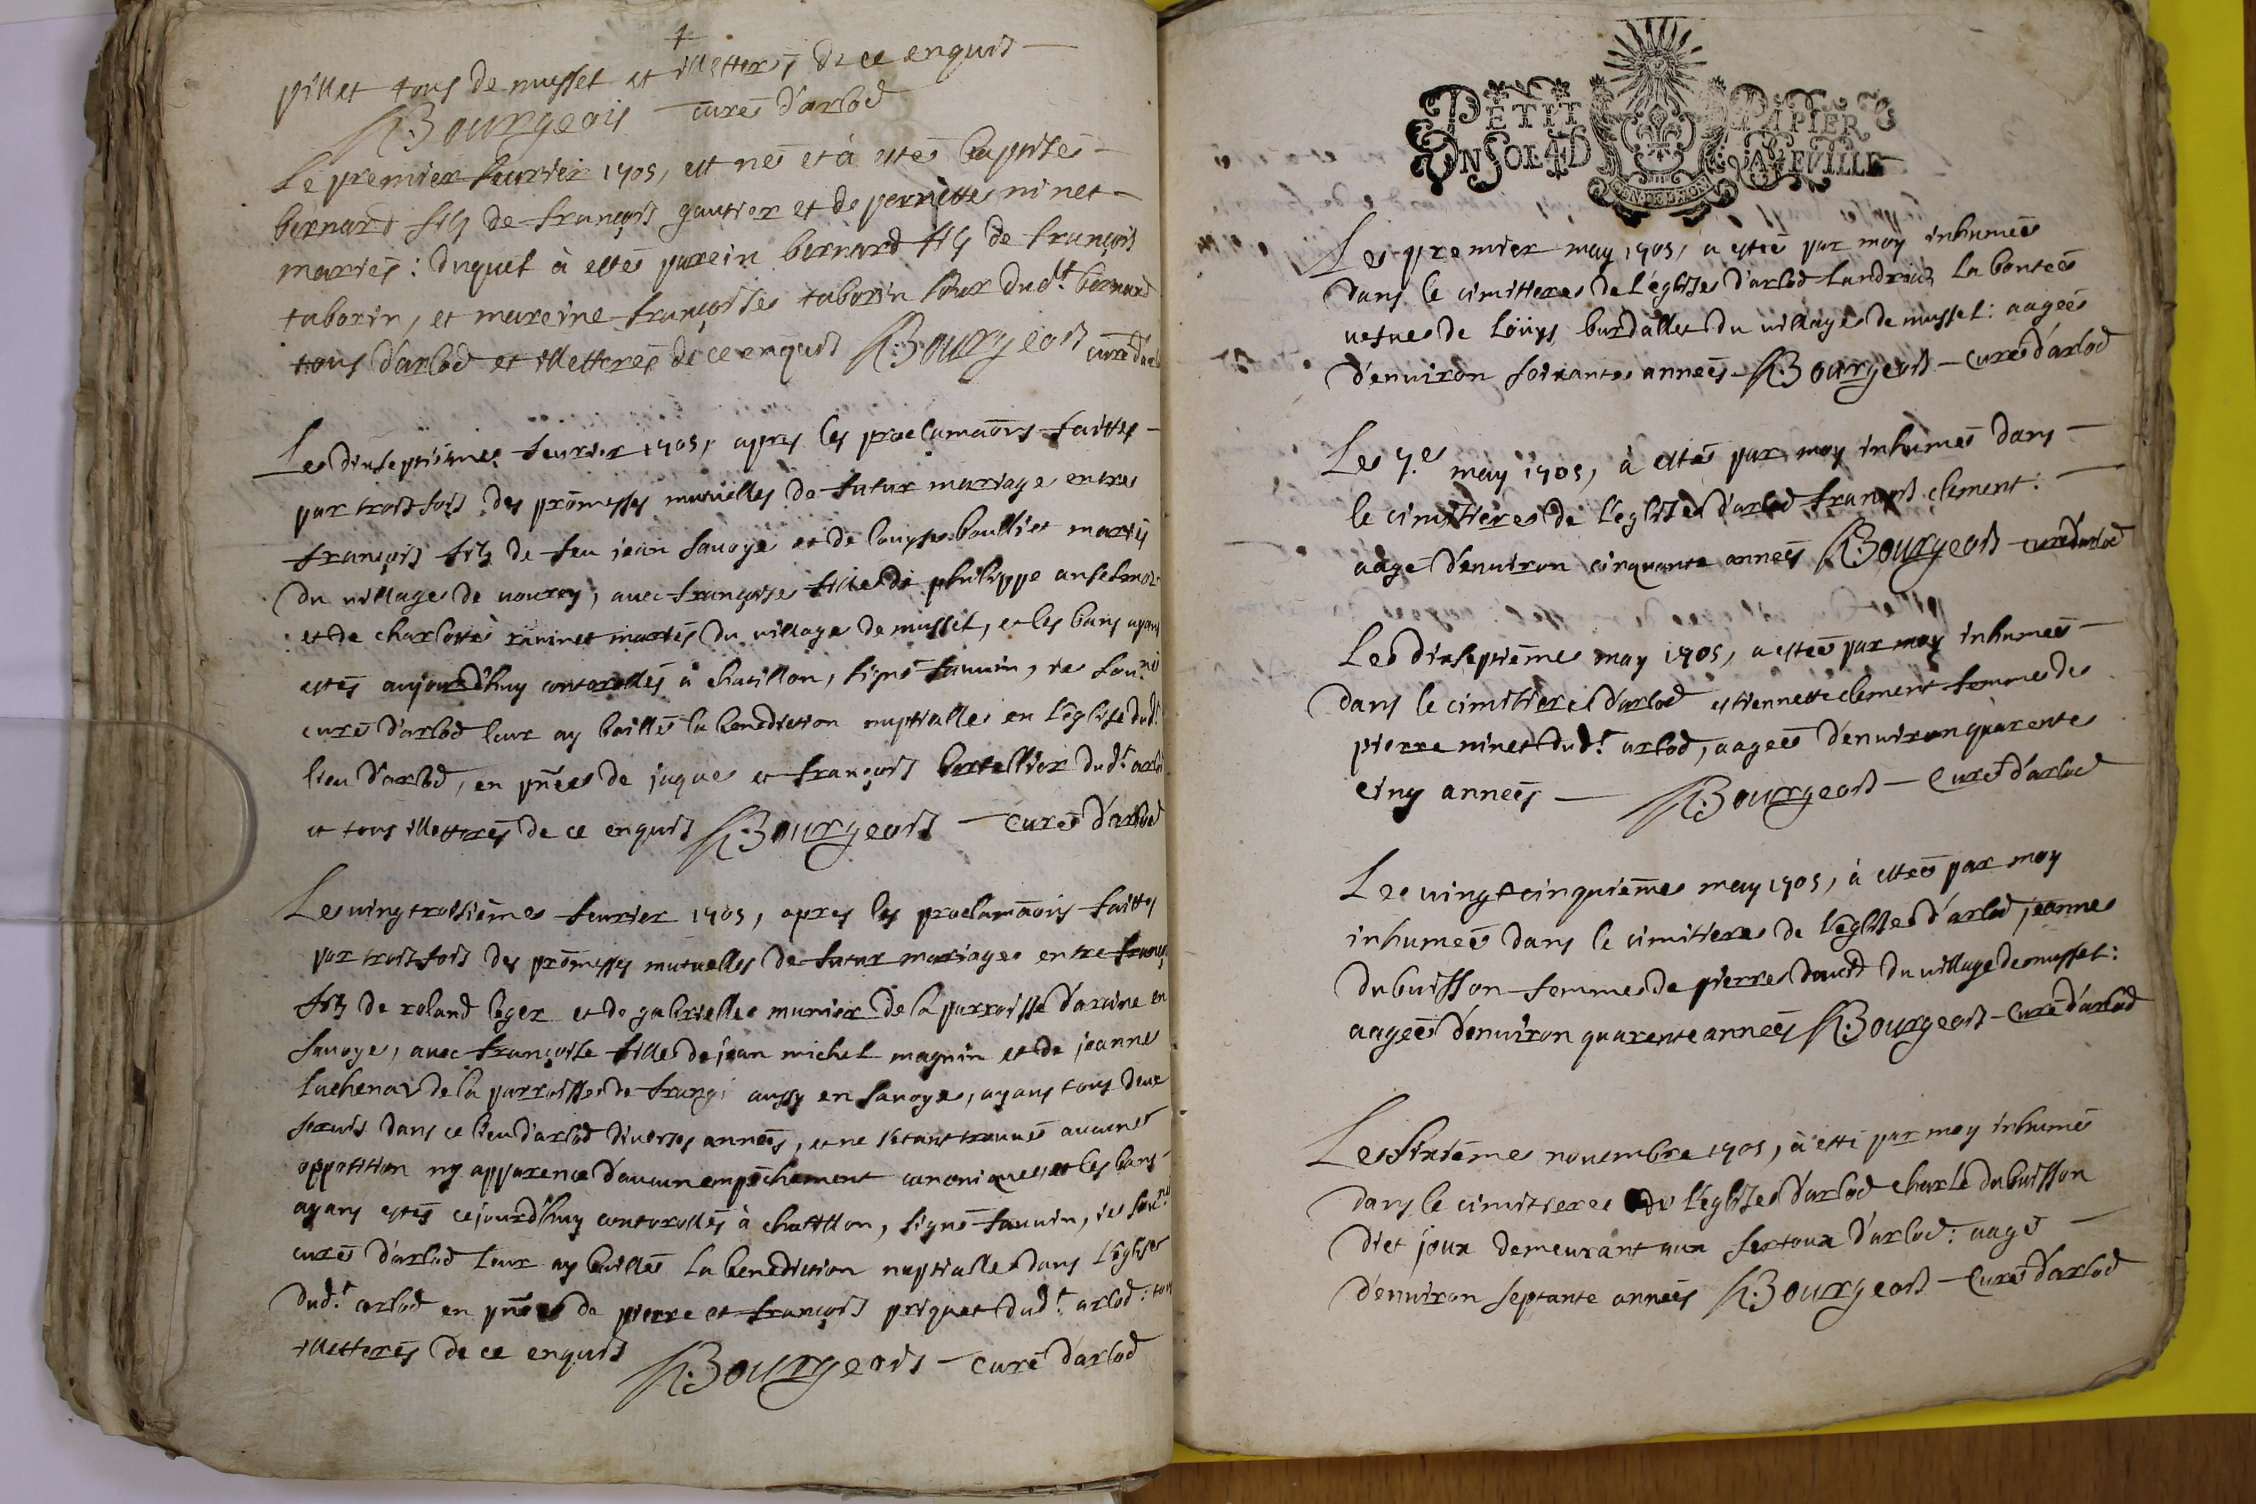 pillet tous de musset et illetterés de ce enquis
Bourgeois curé d'arlod
Le premier feurier 1705, est né et à esté baptisé
bernard fils de françois gautier et de perrette ninet
mariés: duquel à esté parein bernard fils de françois
taborin, et mareine françoise taborin sœur dud.t bernard
tous d'arlod et illetterés de ce enquis Bourgeois curé d'arlod
Le dixseptiéme feurier 1705, apres les proclamaons faittes
par trois fois des promesses mutuelles de futur mariage entre
françois fils de feu jean sauoye et de louyse boulliet mariés
du village de uourey, auec françoise fille de philippe anselmoz
et de charlotte raninet mariés du village de musset, et les bans ayans
estés aujourd'huy controollés à chatillon, signé fauuin, ie sous.né
curé d'arlod leur ay baillé la benediction nuptialle en l'église dud.t
lieu d'arlod, en pñce de jaque et françois bertellier dud.t arlod
et tous illetterés de ce enquis Bourgeois curé d'arlod
Le uingtroisiéme feurier 1705, apres les proclamaons faittes
par trois fois des promesses mutuelles de futur mariage entre françois
fils de roland leger et de gabrielle munier de la parroisse d'arcine en
sauoye, auec françoise fille de jean michel magnin et de jeanne
lachenal de la parroisse de frangi aussy en sauoye, ayans tous deux
seruis dans ce lieu d'arlod diuerses années, et ne s'etant trouué aucune
oppotition ny apparence d'aucun empéchement canonique, et les bans
ayans estés cejourd'huy controollés à chatillon, signé fauuin, ie sous.né
curé d'arlod leur ay baillé la benediction nuptialle dans l'église
dud.t arlod en pñce de pierre et françois priquet dud.t arlod: tous
illetterés de ce enquis Bourgeois curé d'arlod
PETIT PAPIER
UN SOL 4 D LA FEUILLE
Le premier may 1705, a esté par moy inhumée
dans le cimittere de l'église d'arlod landroid la bontée
uefue de loüys burdallet du uillage de musset: aagée
d'enuiron soixante années Bourgeois curé d'arlod
Le 7.e may 1705, à esté par moy inhumé dans
le cimitiere de l'église d'arlod françois clement:
aagé d'enuiron cinquante années Bourgeois curé d'arlod
Le dixseptiéme may 1705, a esté par moy inhumée
dans le cimitiere d'arlod estiennette clement femme de
pierre ninet dud.t arlod, aagée d'enuiron quarente
cinq années Bourgeois curé d'arlod
Le uingtcinquiéme may 1705, à esté par moy
inhumée dans le cimitiere de l'église d'arlod jeanne
dubuisson femme de pierre dauid du uillage de musset:
aagée d'enuiron quarente années Bourgeois curé d'arlod
Le sixiéme nouembre 1705, à esté par moy inhumé
dans le cimitiere de l'église d'arlod charle dubuisson
diet joux demeurant aux sertoux d'arlod: aagé
d'enuiron septante années Bourgeois curé d'arlod